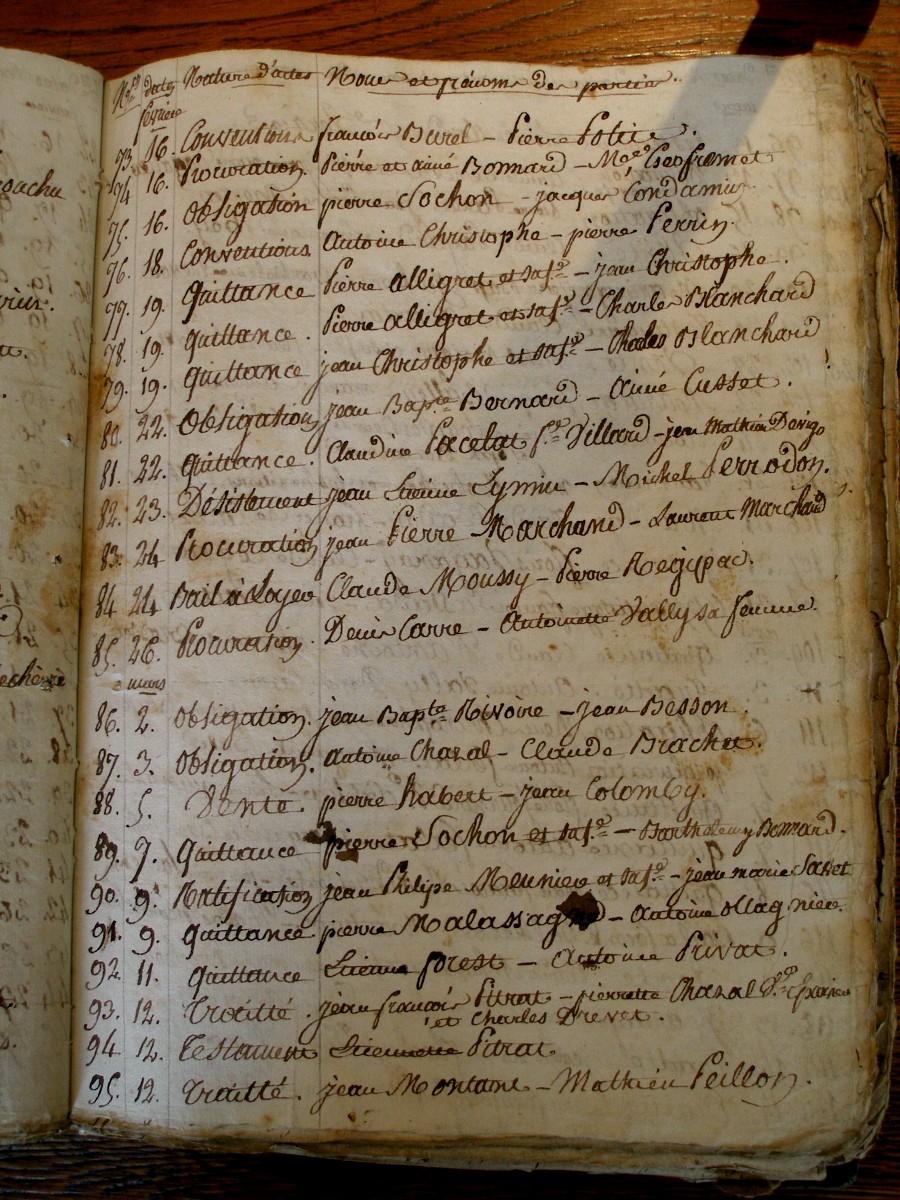 ouchu
Nos dates Nature d'actes Noms et prénoms des parties.
février
73. 16. Conventions françois Burel - Pierre
74 16. Procuration. Pierre et aimé Bonnard -
75. 16. Obligation pierre Sochon - jacques Condamin.
76. 18. Conventions Antoine Christophe - pierre Perrin.
77. 19. Quittance Pierre alligret et sa fe - jean Christophe.
78. 19. quittance. Pierre alligret et sa fe - Charles Blanchard
79. 19. quittance jean Christophe et sa fe - Charles Blanchard
80. 22. Obligation jean Bapte Bernard - aimé Cusset.
81. 22. quittance. Claudine Pacelat fe Villard - jean Mathieu
82. 23. Désistement jean Etienne - Michel Perrodon.
83. 24 Procuration jean Pierre Marchand - Laurent Marchand
84 24 Bail à Loyer Claude Moussy - Pierre
85. 26. Procuration. Denis Carre - Antoinette Vally sa femme.
mars
86. 2. Obligation. jean Bapte Rivoire - jean Besson.
87. 3. Obligation. antoine Chazal - Claude Brachet.
88. 5. Vente. pierre Rabert - jean Colomby.
89. 7. quittance pierre Sochon et sa fe - Barthelemy Bonnard.
90. 9. Ratification jean Philipe Meunier et sa fe - jean marie
91. 9. quittance. pierre Malassagne - antoine ollagniere.
92. 11. quittance Etienne forest - Antoine Privat.
93. 12. Traitté. jean françois Pitrat - pierrette Chazal
et Charles Drevet.
94 12. Testament Etiennette Pitrat
95. 12. Traitté. jean Montant - Mathieu Peillon.